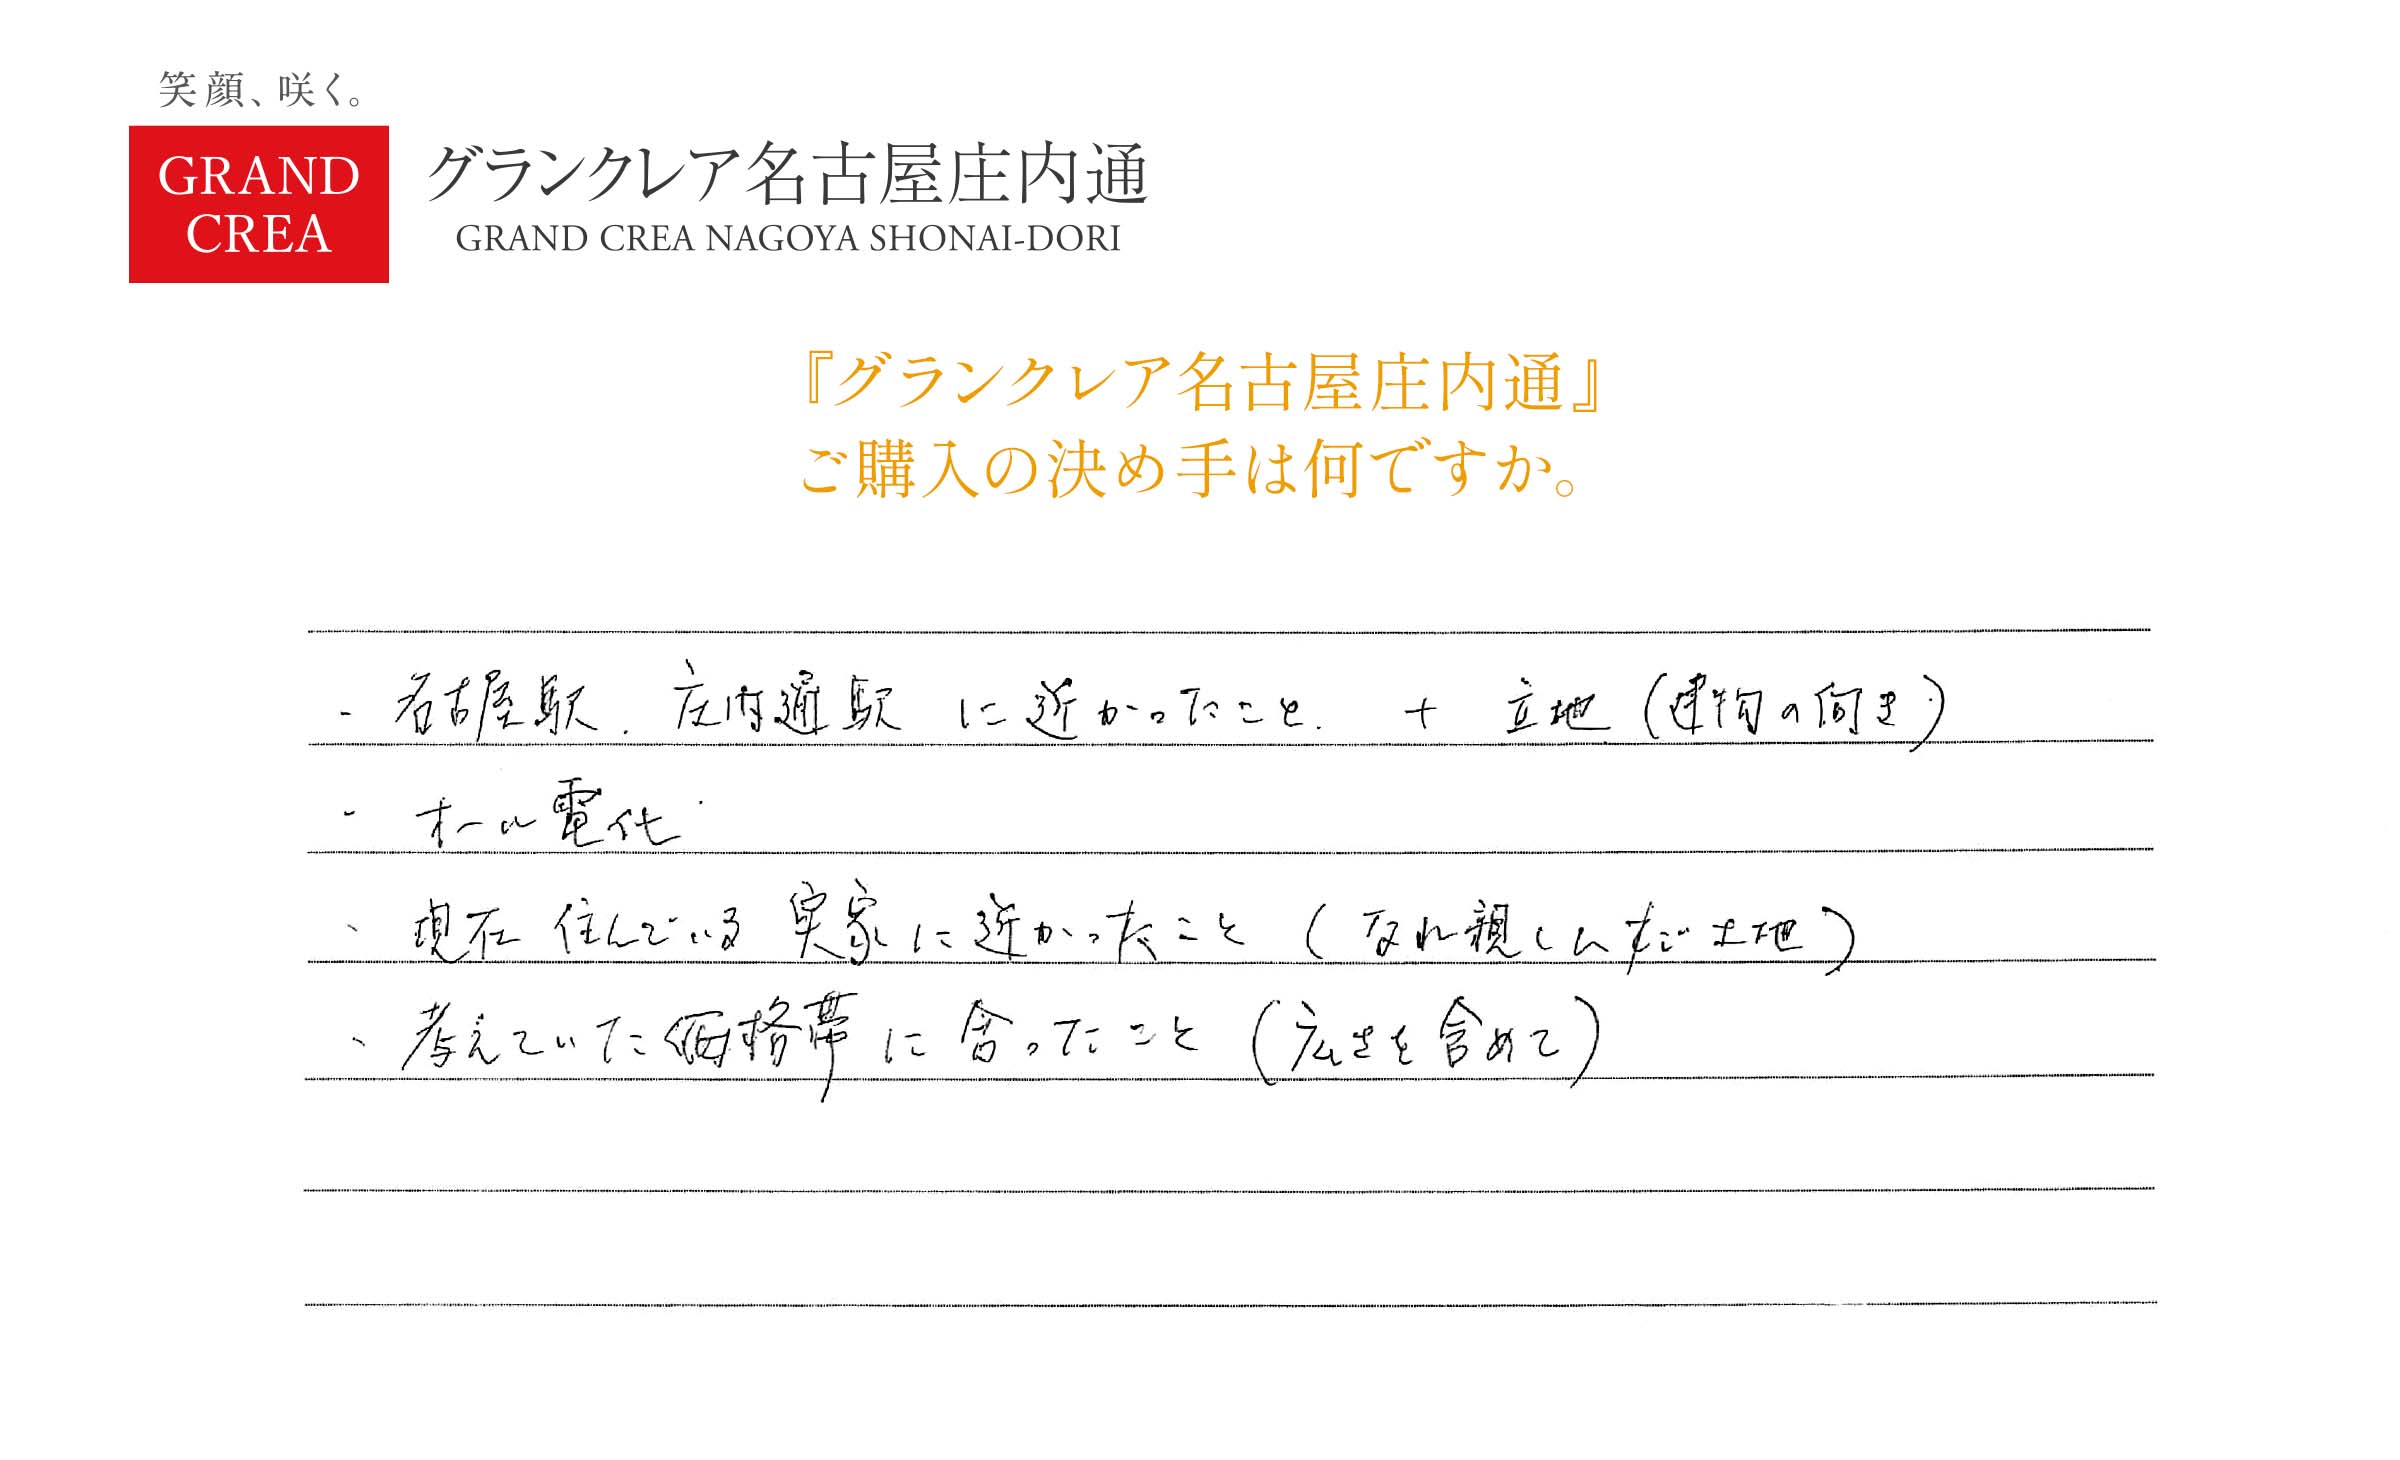 笑顔、咲く。
GRAND
CREA
グランクレア名古屋庄内通
GRAND CREA NAGOYA SHONAI-DORI
『グランクレア名古屋庄内通』
ご購入の決め手は何ですか。
・名古屋駅、庄内通駅に近かったこと. + 立地(建物の向き)
・オール電化
・現在住んでいる実家に近かったこと(なれ親しんだ土地)
・考えていた価格帯に合ったこと(広さを含めて)